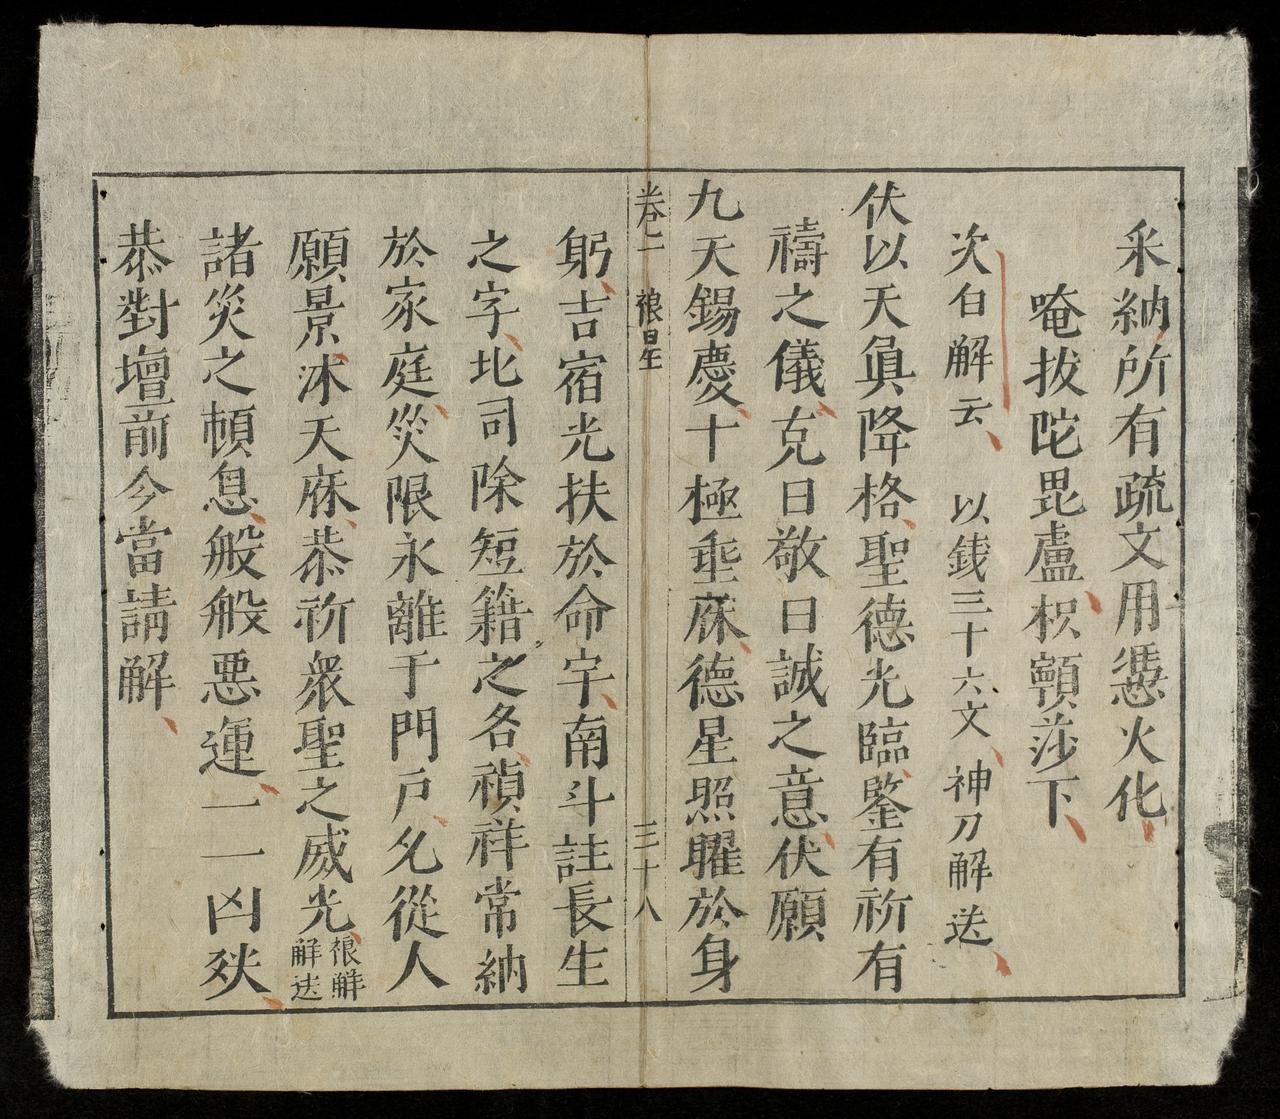 釆納所有疏文用憑火化
唵拔陀毘盧枳顊莎下
次白解云 以錢三十六文神刀解送
伏以天眞降格聖德光臨鑒有祈有
禱之儀克日敬日誠之意伏願
九天錫慶十極垂庥德星照曜於身
卷二 䄄日午 三十八
躬吉宿光扶於命宇南斗註長生
之字北司除短籍之各禎祥常納
於家庭災限永離于門戶凢從人
願景沐天庥恭祈衆聖之威光䄄解解送
諸災之頓息般般惡運一一凶殃
恭對壇前今當請解